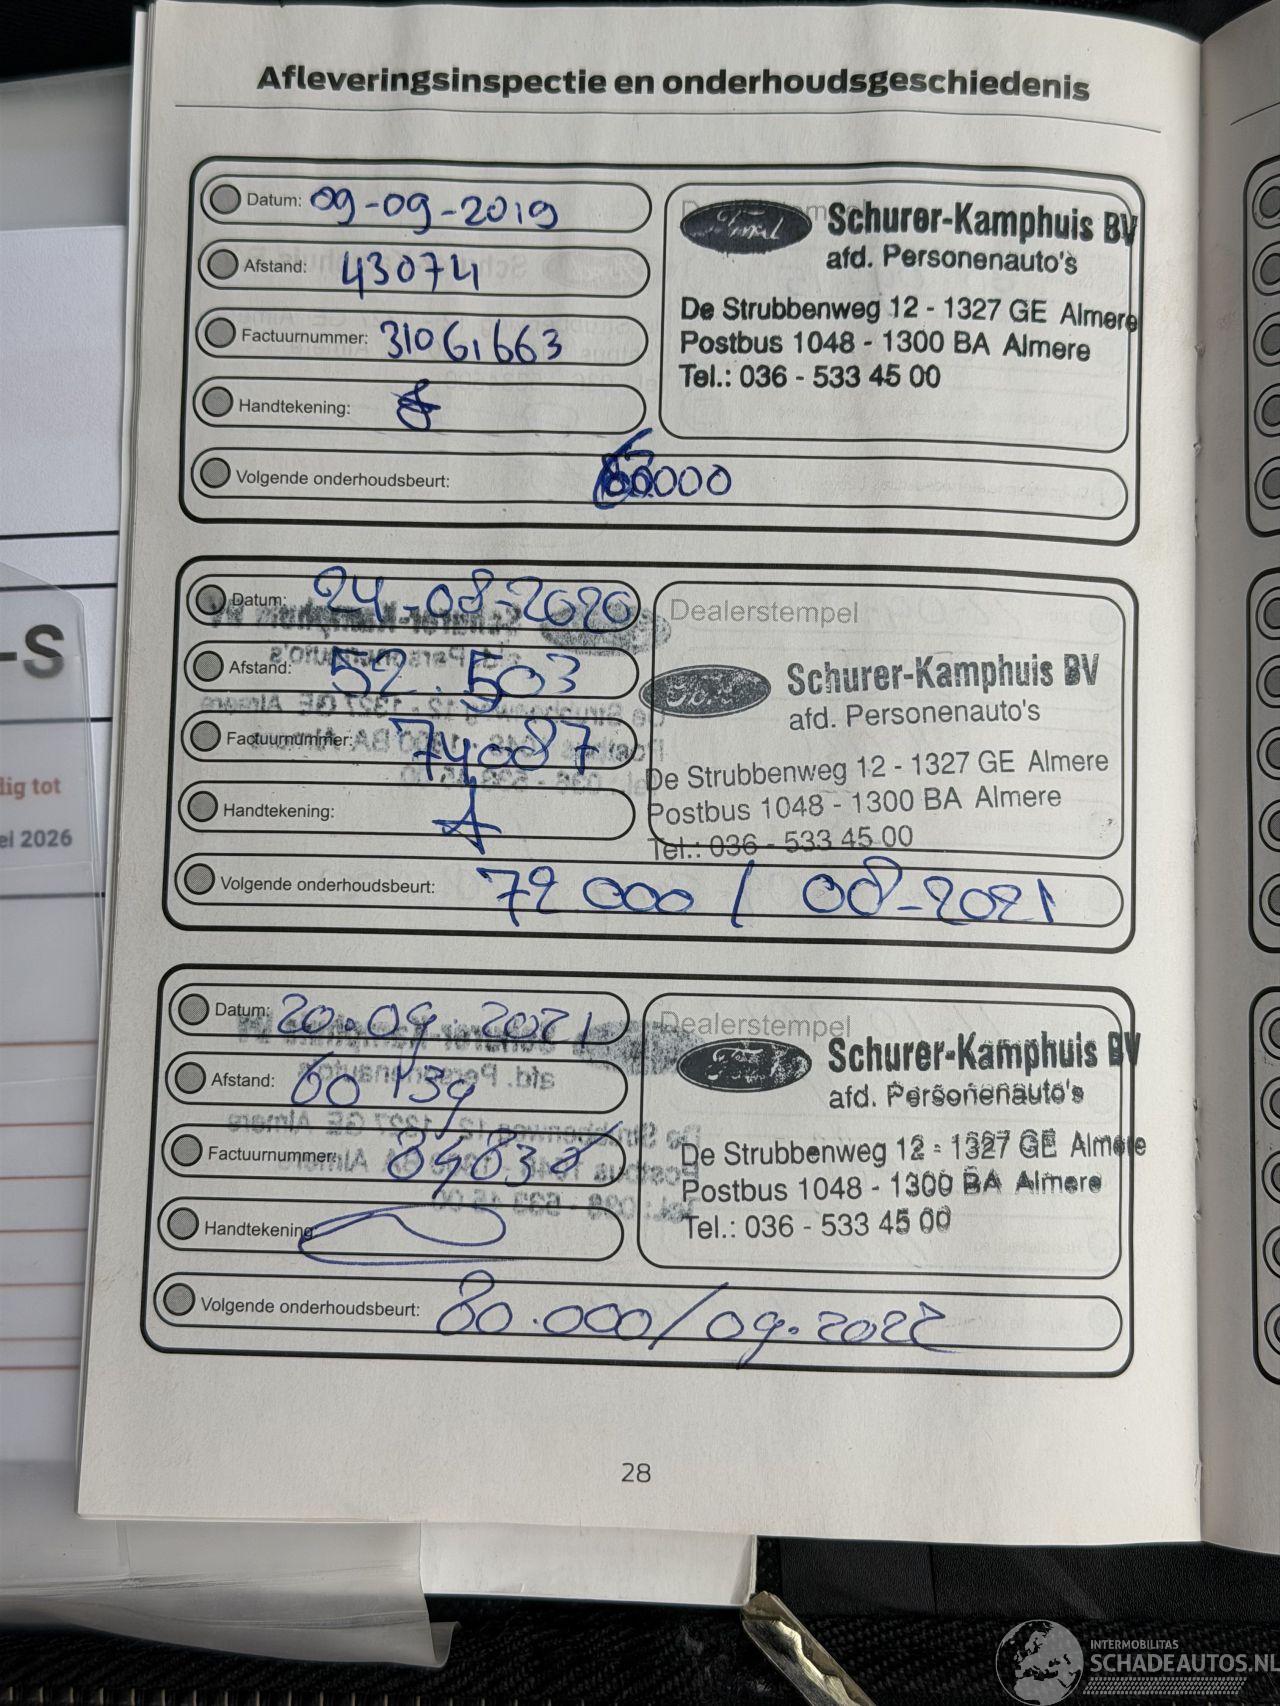 Afleveringsinspectie en onderhoudsgeschiedenis
Datum: 09-09-2019
Afstand: 43074
Factuurnummer: 31061663
Handtekening:
Volgende onderhoudsbeurt:
Ford Schurer-Kamphuis BV
afd. Personenauto's
De Strubbenweg 12 - 1327 GE Almere
Postbus 1048 - 1300 BA Almere
Tel.: 036 - 533 45 00
Datum: 24-08-2020
Afstand: 52.503
Factuurnummer: 74087
Handtekening:
Volgende onderhoudsbeurt: 72 000 / 08-2021
Dealerstempel
Ford Schurer-Kamphuis BV
afd. Personenauto's
De Strubbenweg 12 - 1327 GE Almere
Postbus 1048 - 1300 BA Almere
Tel.: 036 - 533 45 00
Datum: 20.09.2021
Afstand: 60 139
Factuurnummer:
Handtekening:
Volgende onderhoudsbeurt: 80.000/09.2022
Dealerstempel
Ford Schurer-Kamphuis BV
afd. Personenauto's
De Strubbenweg 12 - 1327 GE Almere
Postbus 1048 - 1300 BA Almere
Tel.: 036 - 533 45 00
28
-S
dig tot
ei 2026
INTERMOBILITAS
SCHADEAUTOS.NL